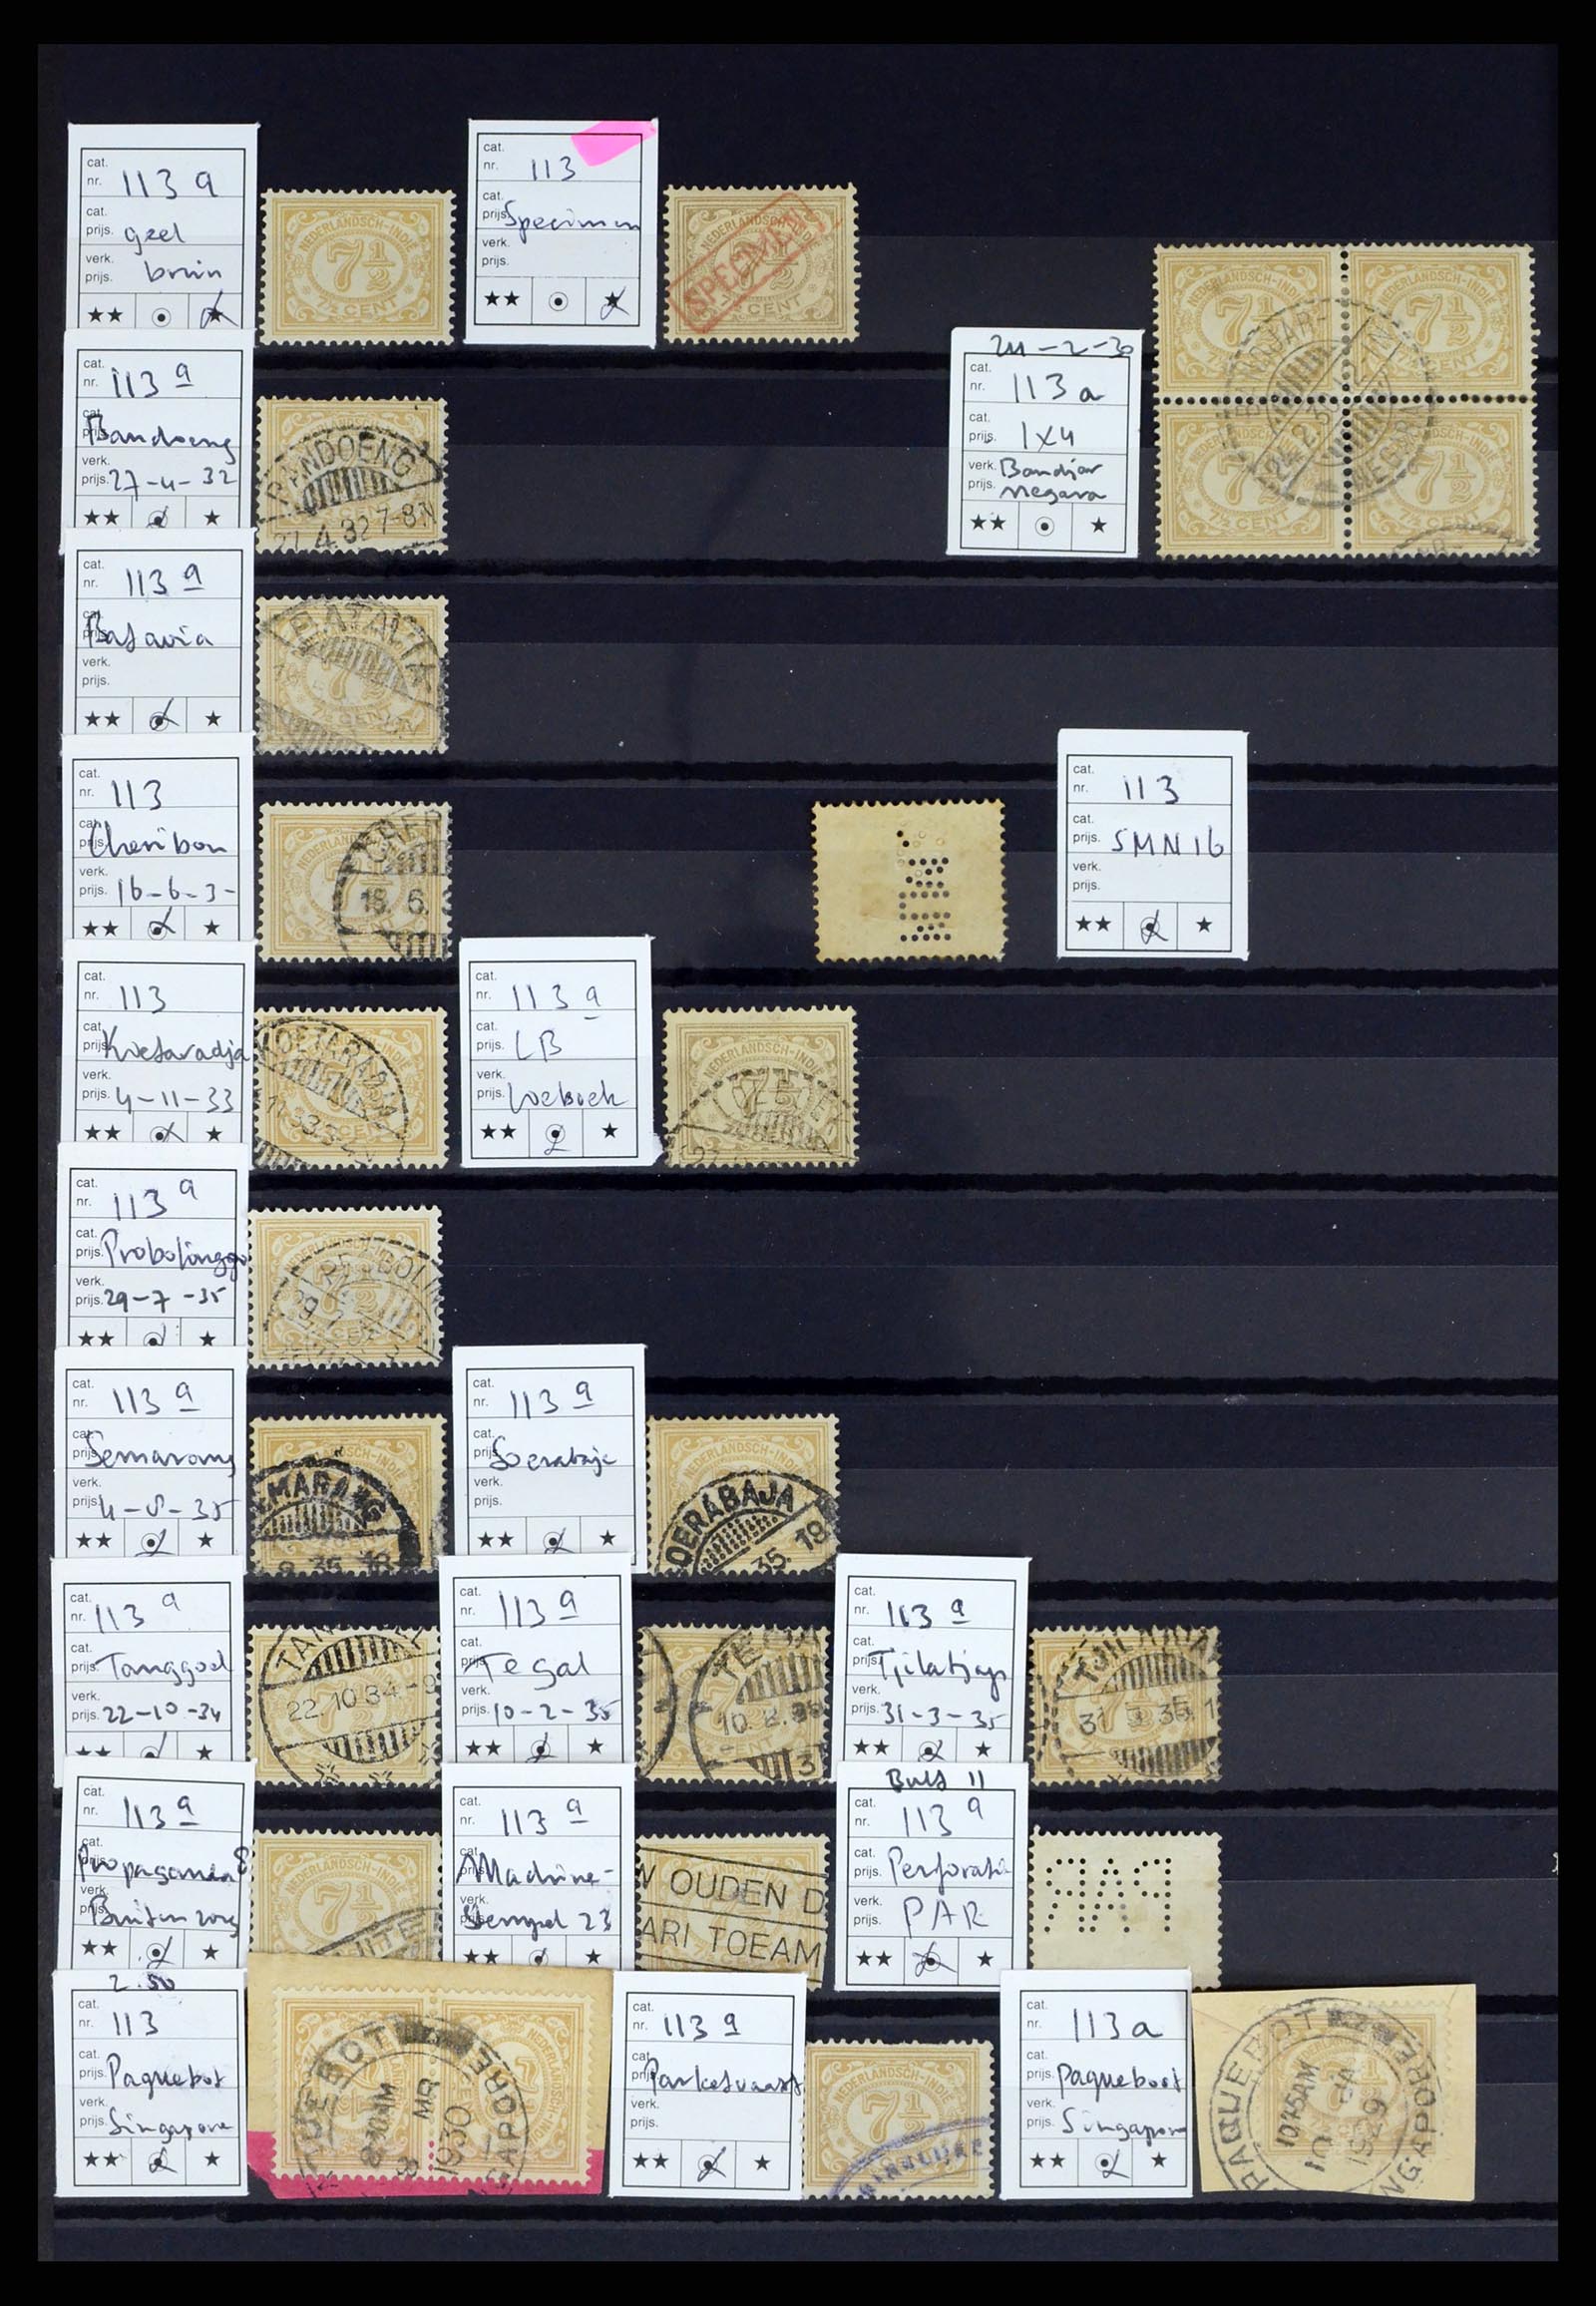 cat.
nr. 113 a
cat.
prijs. geel
verk. bruin
prijs.
NEDERLANDSCH-INDIË
7½
7½ CENT
cat.
nr. 113
cat.
prijs. Specimen
verk.
prijs.
NEDERLANDSCH-INDIË
SPECIMEN
CENT
24-2-30
cat.
nr. 113a
cat.
prijs. 1x4
verk. Bandjar
prijs. negara
NEDERLANDSCH-INDIË
7½
7½ CENT
BANDJAR-
NEGARA
24.2.30
cat.
nr. 113 a
cat.
prijs. Bandoeng
verk.
prijs. 27-4-32
BANDOENG
27.4.32 7-8N
cat.
nr. 113 a
cat.
prijs. Batavia
verk.
prijs.
BATAVIA
7½
cat.
nr. 113
cat.
prijs. Cheribon
verk.
prijs. 16-6-3-
CHER
6.
cat.
nr. 113
cat.
prijs. SMN 16
verk.
prijs.
cat.
nr. 113
cat.
prijs. Koetaradja
verk.
prijs. 4-11-33
KOETARADJA
cat.
nr. 113 a
cat.
prijs. LB
verk.
prijs. Loeboek
NEDERLANDSCH-INDIË
7½
cat.
nr. 113 a
cat.
prijs. Probolinggo
verk.
prijs. 29-7-35
BOLIN
cat.
nr. 113 a
cat.
prijs. Semarang
verk.
prijs. 4-8-35
EMARANG
8.35.18
cat.
nr. 113 a
cat.
prijs. Soerabaja
verk.
prijs.
NEDERLANDSCH-INDIË
OERABAJA
35.19
cat.
nr. 113 a
cat.
prijs. Tanggoel
verk.
prijs. 22-10-34
TAN EL
22.10.34-9
cat.
nr. 113 a
cat.
prijs. Tegal
verk.
prijs. 10-2-35
TE
10.2.35
3
cat.
nr. 113 a
cat.
prijs. Tjilatjap
verk.
prijs. 31-3-35
TJILATJAP
31.3.35.1
cat.
nr. 113 a
cat.
prijs. Propaganda 8
verk.
prijs. Buitenzorg
NEDERLANDSCH-INDIË
7½
UITE
cat.
nr. 113 a
cat.
prijs. Machine-
verk.
prijs. Stempel 23
W OUDEN D
ARI TOEAM
Bult 11
cat.
nr. 113 a
cat.
prijs. Perforatie
verk.
prijs. PAR
PAR
2.50
cat.
nr. 113
cat.
prijs. Paquebot
verk.
prijs. Singapore
QUEBOT
8-10AM
8 MR
1930
GAPORE
cat.
nr. 113 a
cat.
prijs. Parketvaart
verk.
prijs.
NEDERLANDSCH-INDIË
7½
cat.
nr. 113a
cat.
prijs. Paqueboot
verk.
prijs. Singapore
PAQUEBOT
10.15AM
10 JA
1929
NGAPORE